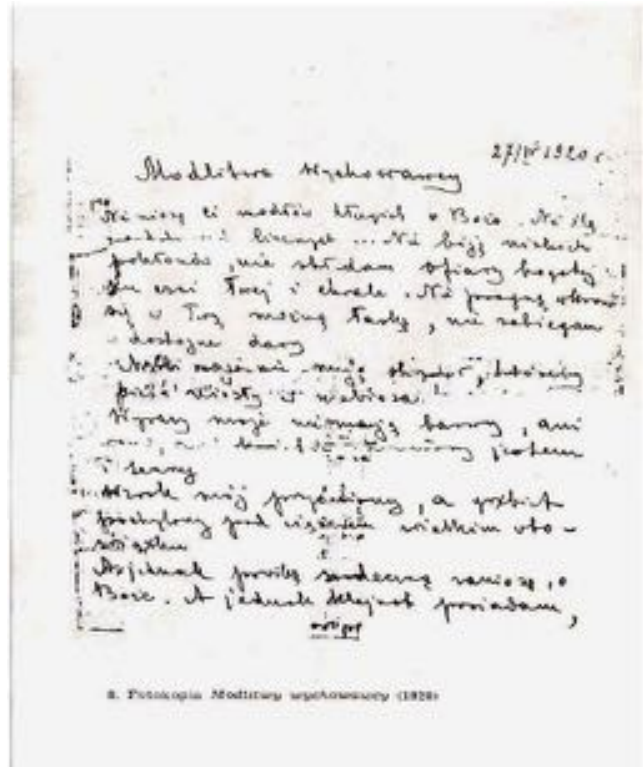 27/IV 1920 r.
Modlitwa Wychowawcy
Nie niosę Ci modłów długich o Boże. Nie ślę
licznych ... Nie biję niskich
pokłonów, nie składam ofiary bogatej
ku czci Twej i chwale. Nie pragnę wkraść
się w Twą możną łaskę, nie zabiegam
o dostojne dary
Myśli moje nie mają skrzydeł, któreby
pieśń niosły w niebiosa.
Wyrazy moje nie mają barwy, ani
jestem
i senny
Wzrok mój przyćmiony, a grzbiet
pochylony pod ciężarem wielkim obo-
wiązku
A jednak prośbę serdeczną zaniosę, o
Boże. A jednak klejnot posiadam,
8. Fotokopia Modlitwy wychowawcy (1920)